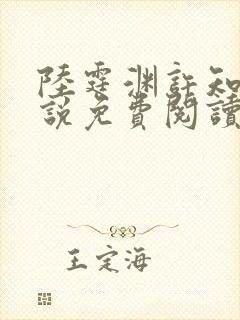 陸霆淵許知
說免費閱讀
王定海